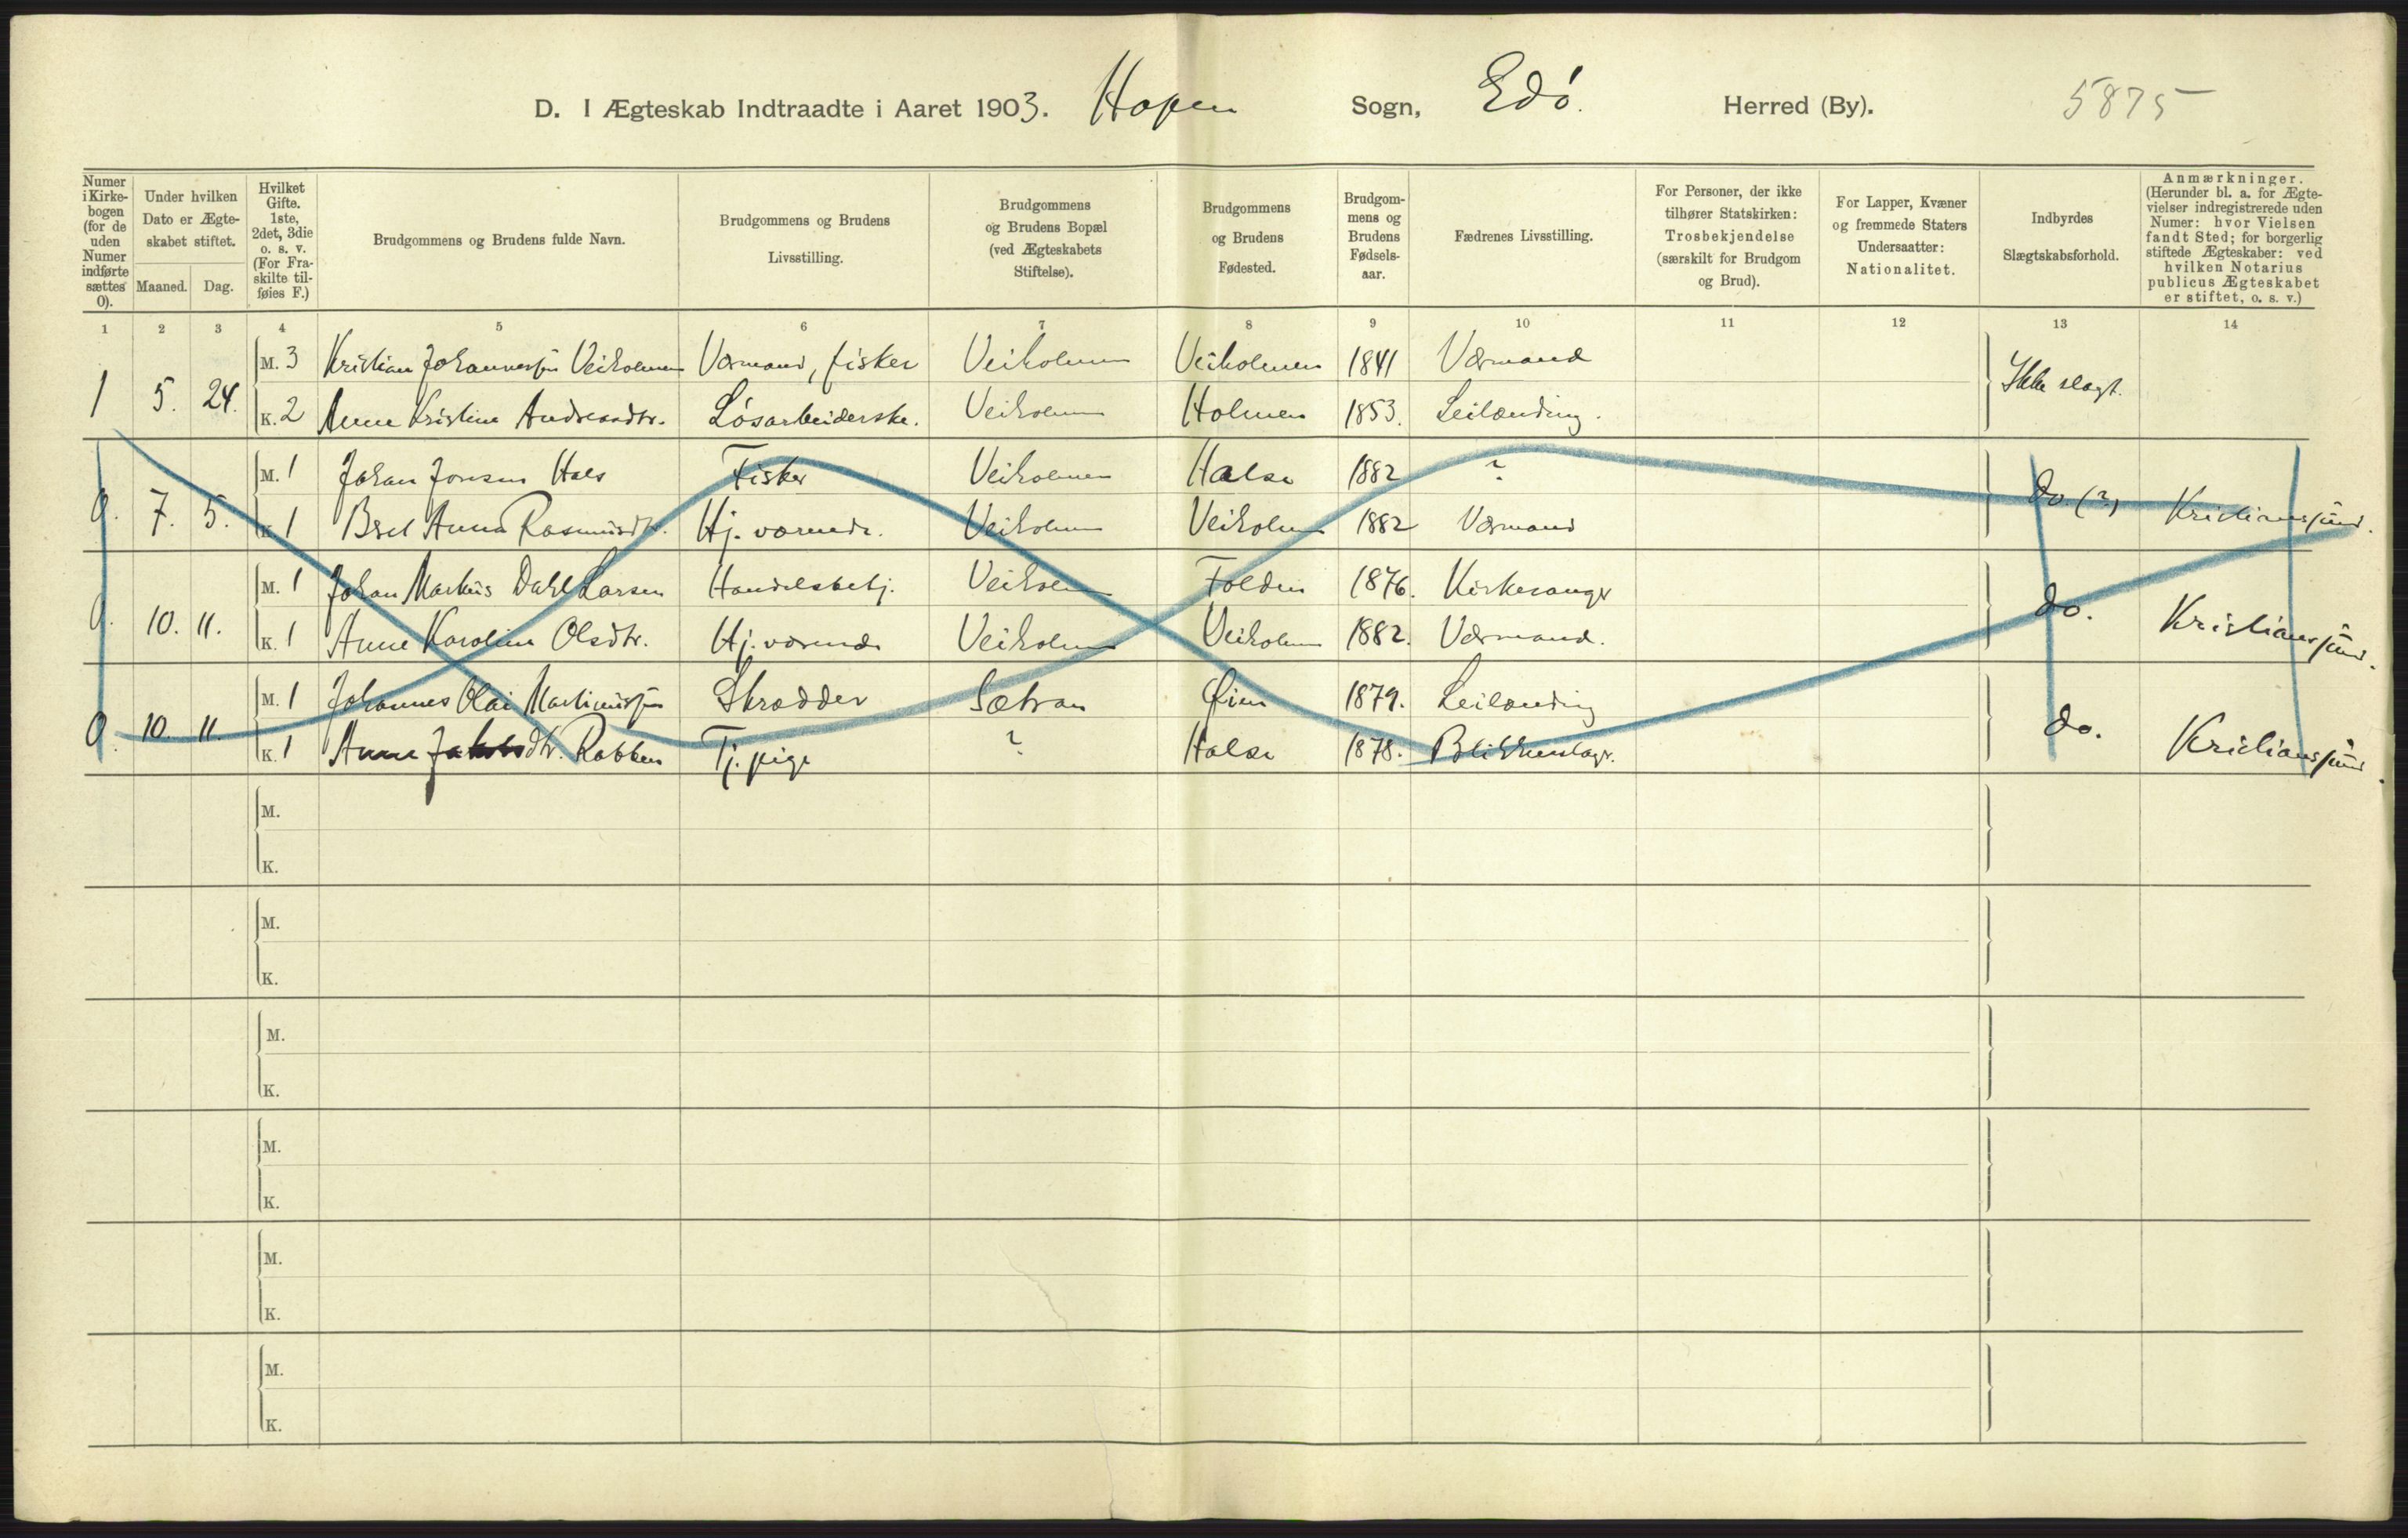 D. I Ægteskab Indtraadte i Aaret 1903. Hopen Sogn, Edø. Herred (By). 5875
Numer i Kirke- bogen (for de uden Numer indførte sættes 0).
Under hvilken Dato er Ægte- skabet stiftet.
Maaned. Dag.
Hvilket Gifte. 1ste, 2det, 3die o. s. v. (For Fra- skilte til- føies F.)
Brudgommens og Brudens fulde Navn.
Brudgommens og Brudens Livsstilling.
Brudgommens og Brudens Bopæl (ved Ægteskabets Stiftelse).
Brudgommens og Brudens Fødested.
Brudgom- mens og Brudens Fødsels- aar.
Fædrenes Livsstilling.
For Personer, der ikke tilhører Statskirken: Trosbekjendelse (særskilt for Brudgom og Brud).
For Lapper, Kvæner og fremmede Staters Undersaatter: Nationalitet.
Indbyrdes Slægtskabsforhold.
Anmærkninger. (Herunder bl. a. for Ægte- vielser indregistrerede uden Numer: hvor Vielsen fandt Sted; for borgerlig stiftede Ægteskaber: ved hvilken Notarius publicus Ægteskabet er stiftet, o. s. v.)
1 2 3 4 5 6 7 8 9 10 11 12 13 14
M. 3 Kristian Johannessen Veiholmen Værmand, fisker Veiholmen Veiholmen 1841 Værmand
1 5. 24. Ikke slægt.
K. 2 Anne Kristine Andreasdtr. Løsarbeiderske. Veiholmen Holmen 1853. Leilænding.
M. 1 Johan Jonsen Hals Fisker Veiholmen Halse 1882 ?
0. 7. 5. do. (?) Kristiansund.
K. 1 Anna Rasmusdtr. Hj. værende. Veiholmen Veiholmen 1882 Værmand
M. 1 Johan Markus Dahl Larsen Handelsbetj. Veiholmen Folden 1876. Kirkesanger
0. 10. 11. do. Kristiansund.
K. 1 Anne Karoline Olsdtr. Hj. værende Veiholmen Veiholmen 1882. Værmand.
M. 1 Johannes Olai Martinussen Skrædder Sætran Øien 1879. Leilænding
0. 10. 11. do. Kristiansund.
K. 1 Anne Jakobsdtr. Rabben Tj. pige ? Halse 1878. Blikkenslager.
M.
K.
M.
K.
M.
K.
M.
K.
M.
K.
M.
K.